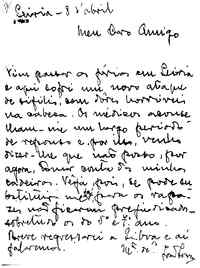 Leiria - 8 d'abril
Meu Caro Amigo
Vim passar as férias em Leiria
e aqui sofri um novo ataque
de sífilis, com dôres horríveis
na cabeça. Os médicos aconse
lham-me um largo período
de repouso e, por isso, venho
dizer-lhe que não posso, por
agora, tomar conta dos minhos
Veja pois, se pode su
para os rapa
zes não ficarem prejudicados
sobretudo os do 5º e 7º ano.
Breve regressarei a Lisboa e aí
falaremos.